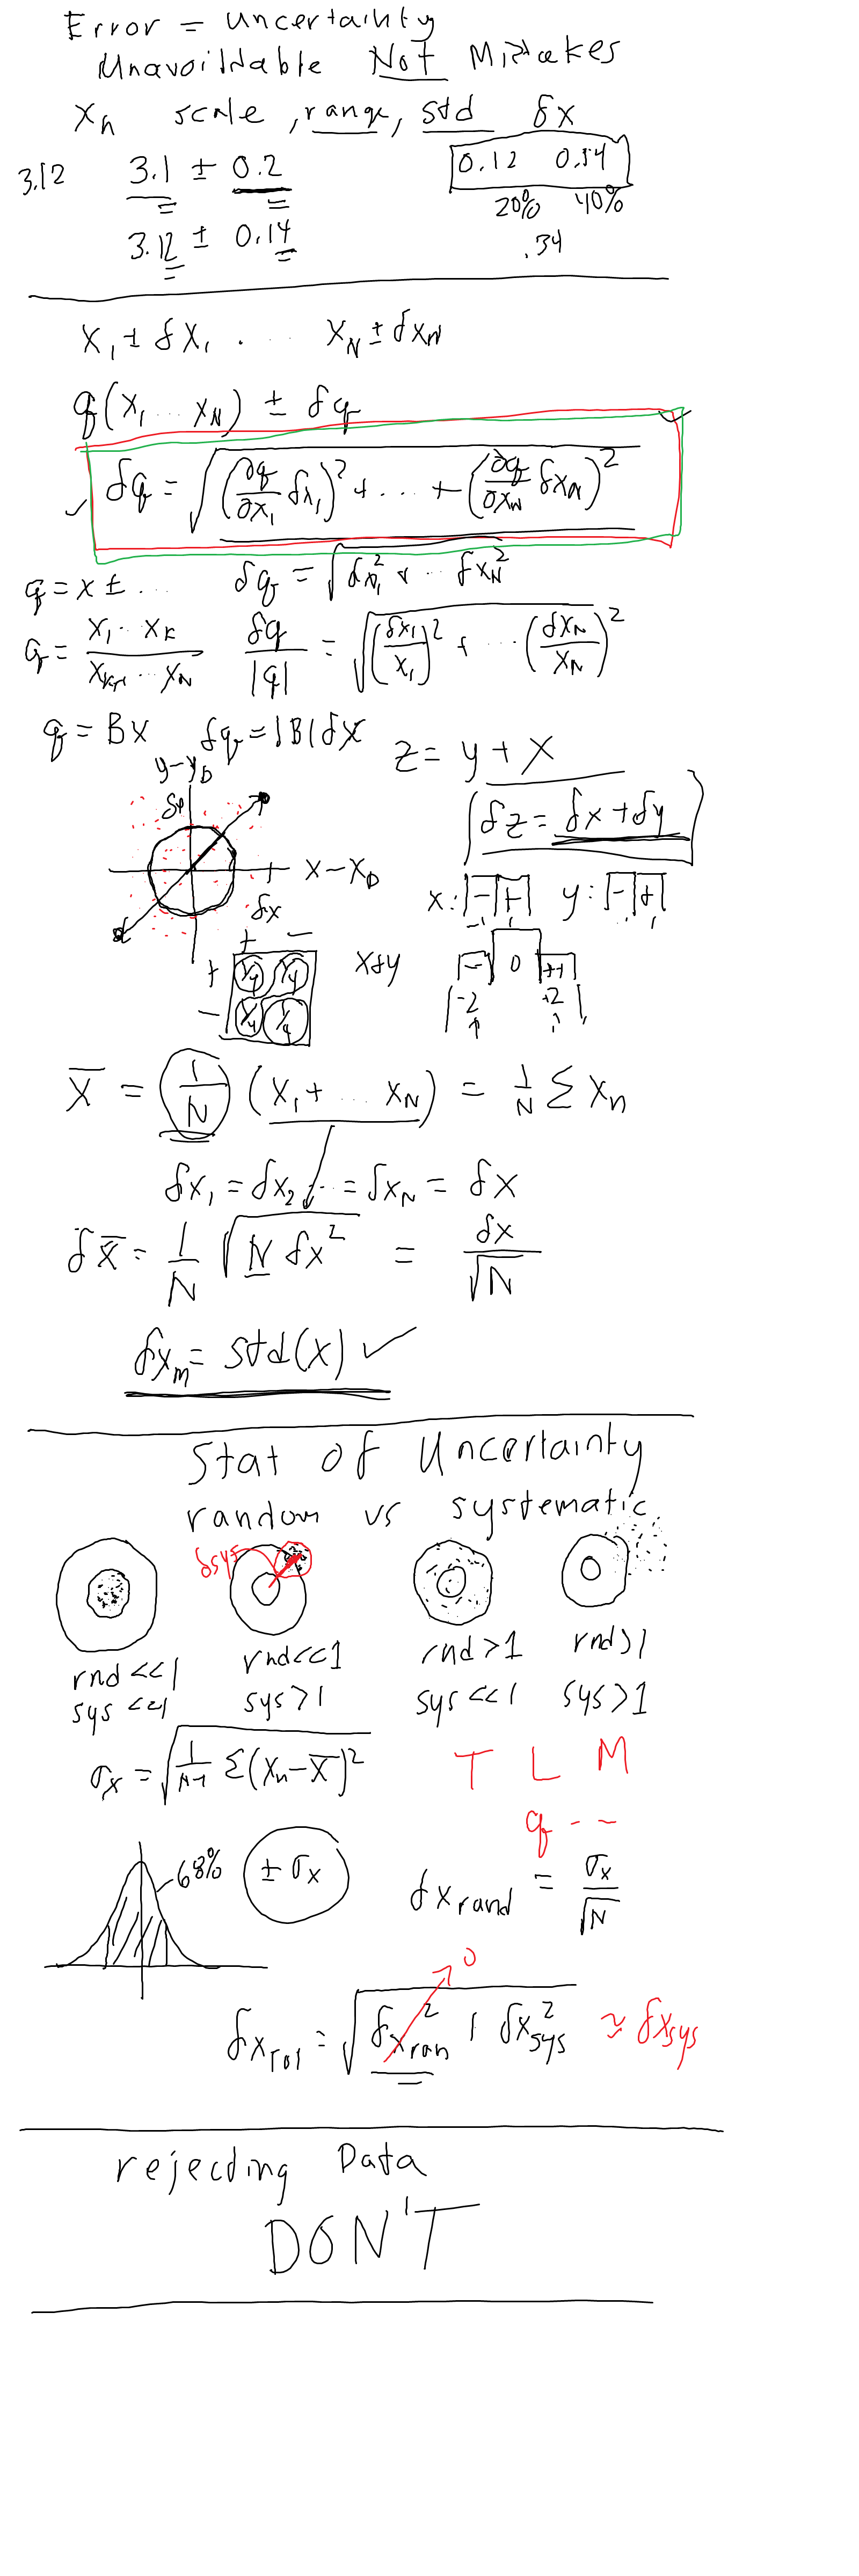 Error = uncertainty
Unavoildable Not Mistakes
xₙ scale, range, std δx
3.12 3.1 ± 0.2 0.12 0.14
20% 40%
3.12 ± 0.14 .34
x₁ ± δx₁ . ... x_N ± δx_N
q(x₁ ... x_N) ± δq
δq = √((∂q/∂x₁ δx₁)² + ... + (∂q/∂x_N δx_N)²)
q = x ± ... δq = √(δx₁² + ... δx_N²)
q = x₁ ·· x_k / x_k+1 ... x_N δq/|q| = √((δx₁/x₁)² + ... (δx_N/x_N)²)
q = Bx δq = |B|δx z = y + x
y-y₀
δy δz = δx + δy
x-x₀
δx x: - + y: - +
-1 1 1
+ -
+ 1/4 1/4 x+y -- 0 ++
- 1/4 1/4 -2 +2
x̄ = (1/N) (x₁ + ... x_N) = 1/N Σ xₙ
δx₁ = δx₂ ... = δx_N = δx
δx̄ = 1/N √(N δx²) = δx/√N
δx_m = std(x) ✓
Stat of Uncertainty
random vs systematic
δsys
rnd <<1 rnd<<1 rnd >1 rnd>1
sys <<1 sys >1 sys <<1 sys >1
σ_x = √(1/(N-1) Σ(xₙ-x̄)²) T L M
q - -
68% ± σ_x δx_rand = σ_x/√N
0
δx_tot = √(δx_ran² + δx_sys²) ≃ δx_sys
rejecting Data
DON'T